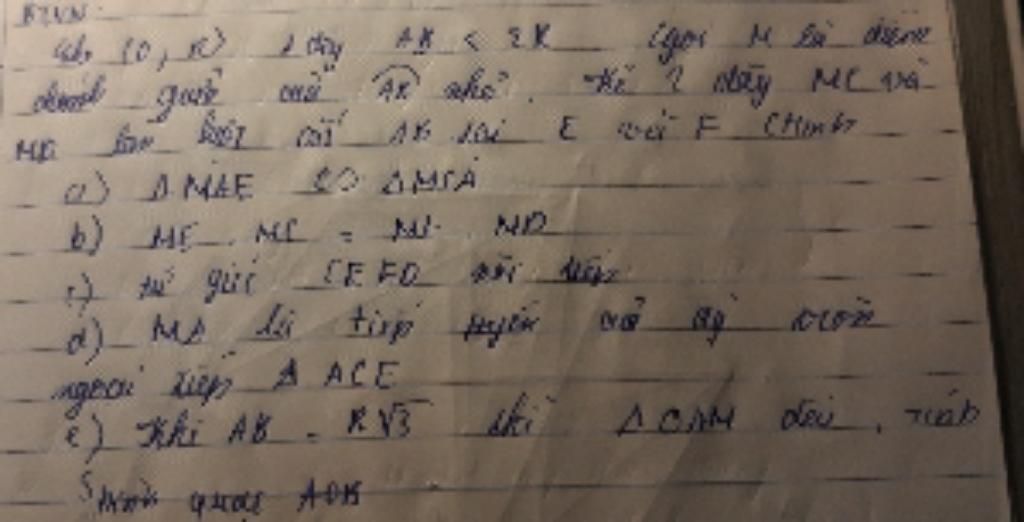 BTVN:
Cho (O, R) 1 dây AB < 2R Gọi M là điểm
chính giữa của AB nhỏ. Kẻ 2 dây MC và
MD lần lượt cắt AB tại E và F CMinh
a) Δ MAE ∽ Δ MCA
b) ME . MC = MF . MD
c) tứ giác CEFD nội tiếp
d) MA là tiếp tuyến của đg tròn
ngoại tiếp Δ ACE
e) Khi AB = R√3 thì Δ OAM đều, tính
S hình quạt AOB